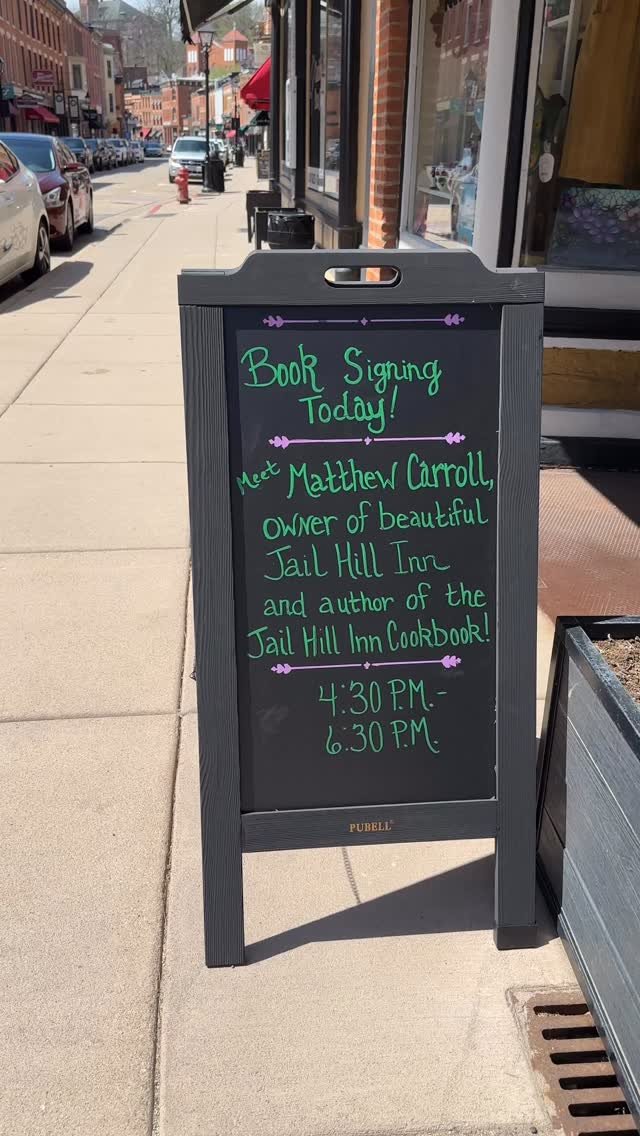 Book Signing
Today!
Meet Matthew Carroll,
owner of beautiful
Jail Hill Inn
and author of the
Jail Hill Inn Cookbook!
4:30 P.M.-
6:30 P.M.
PUBELL